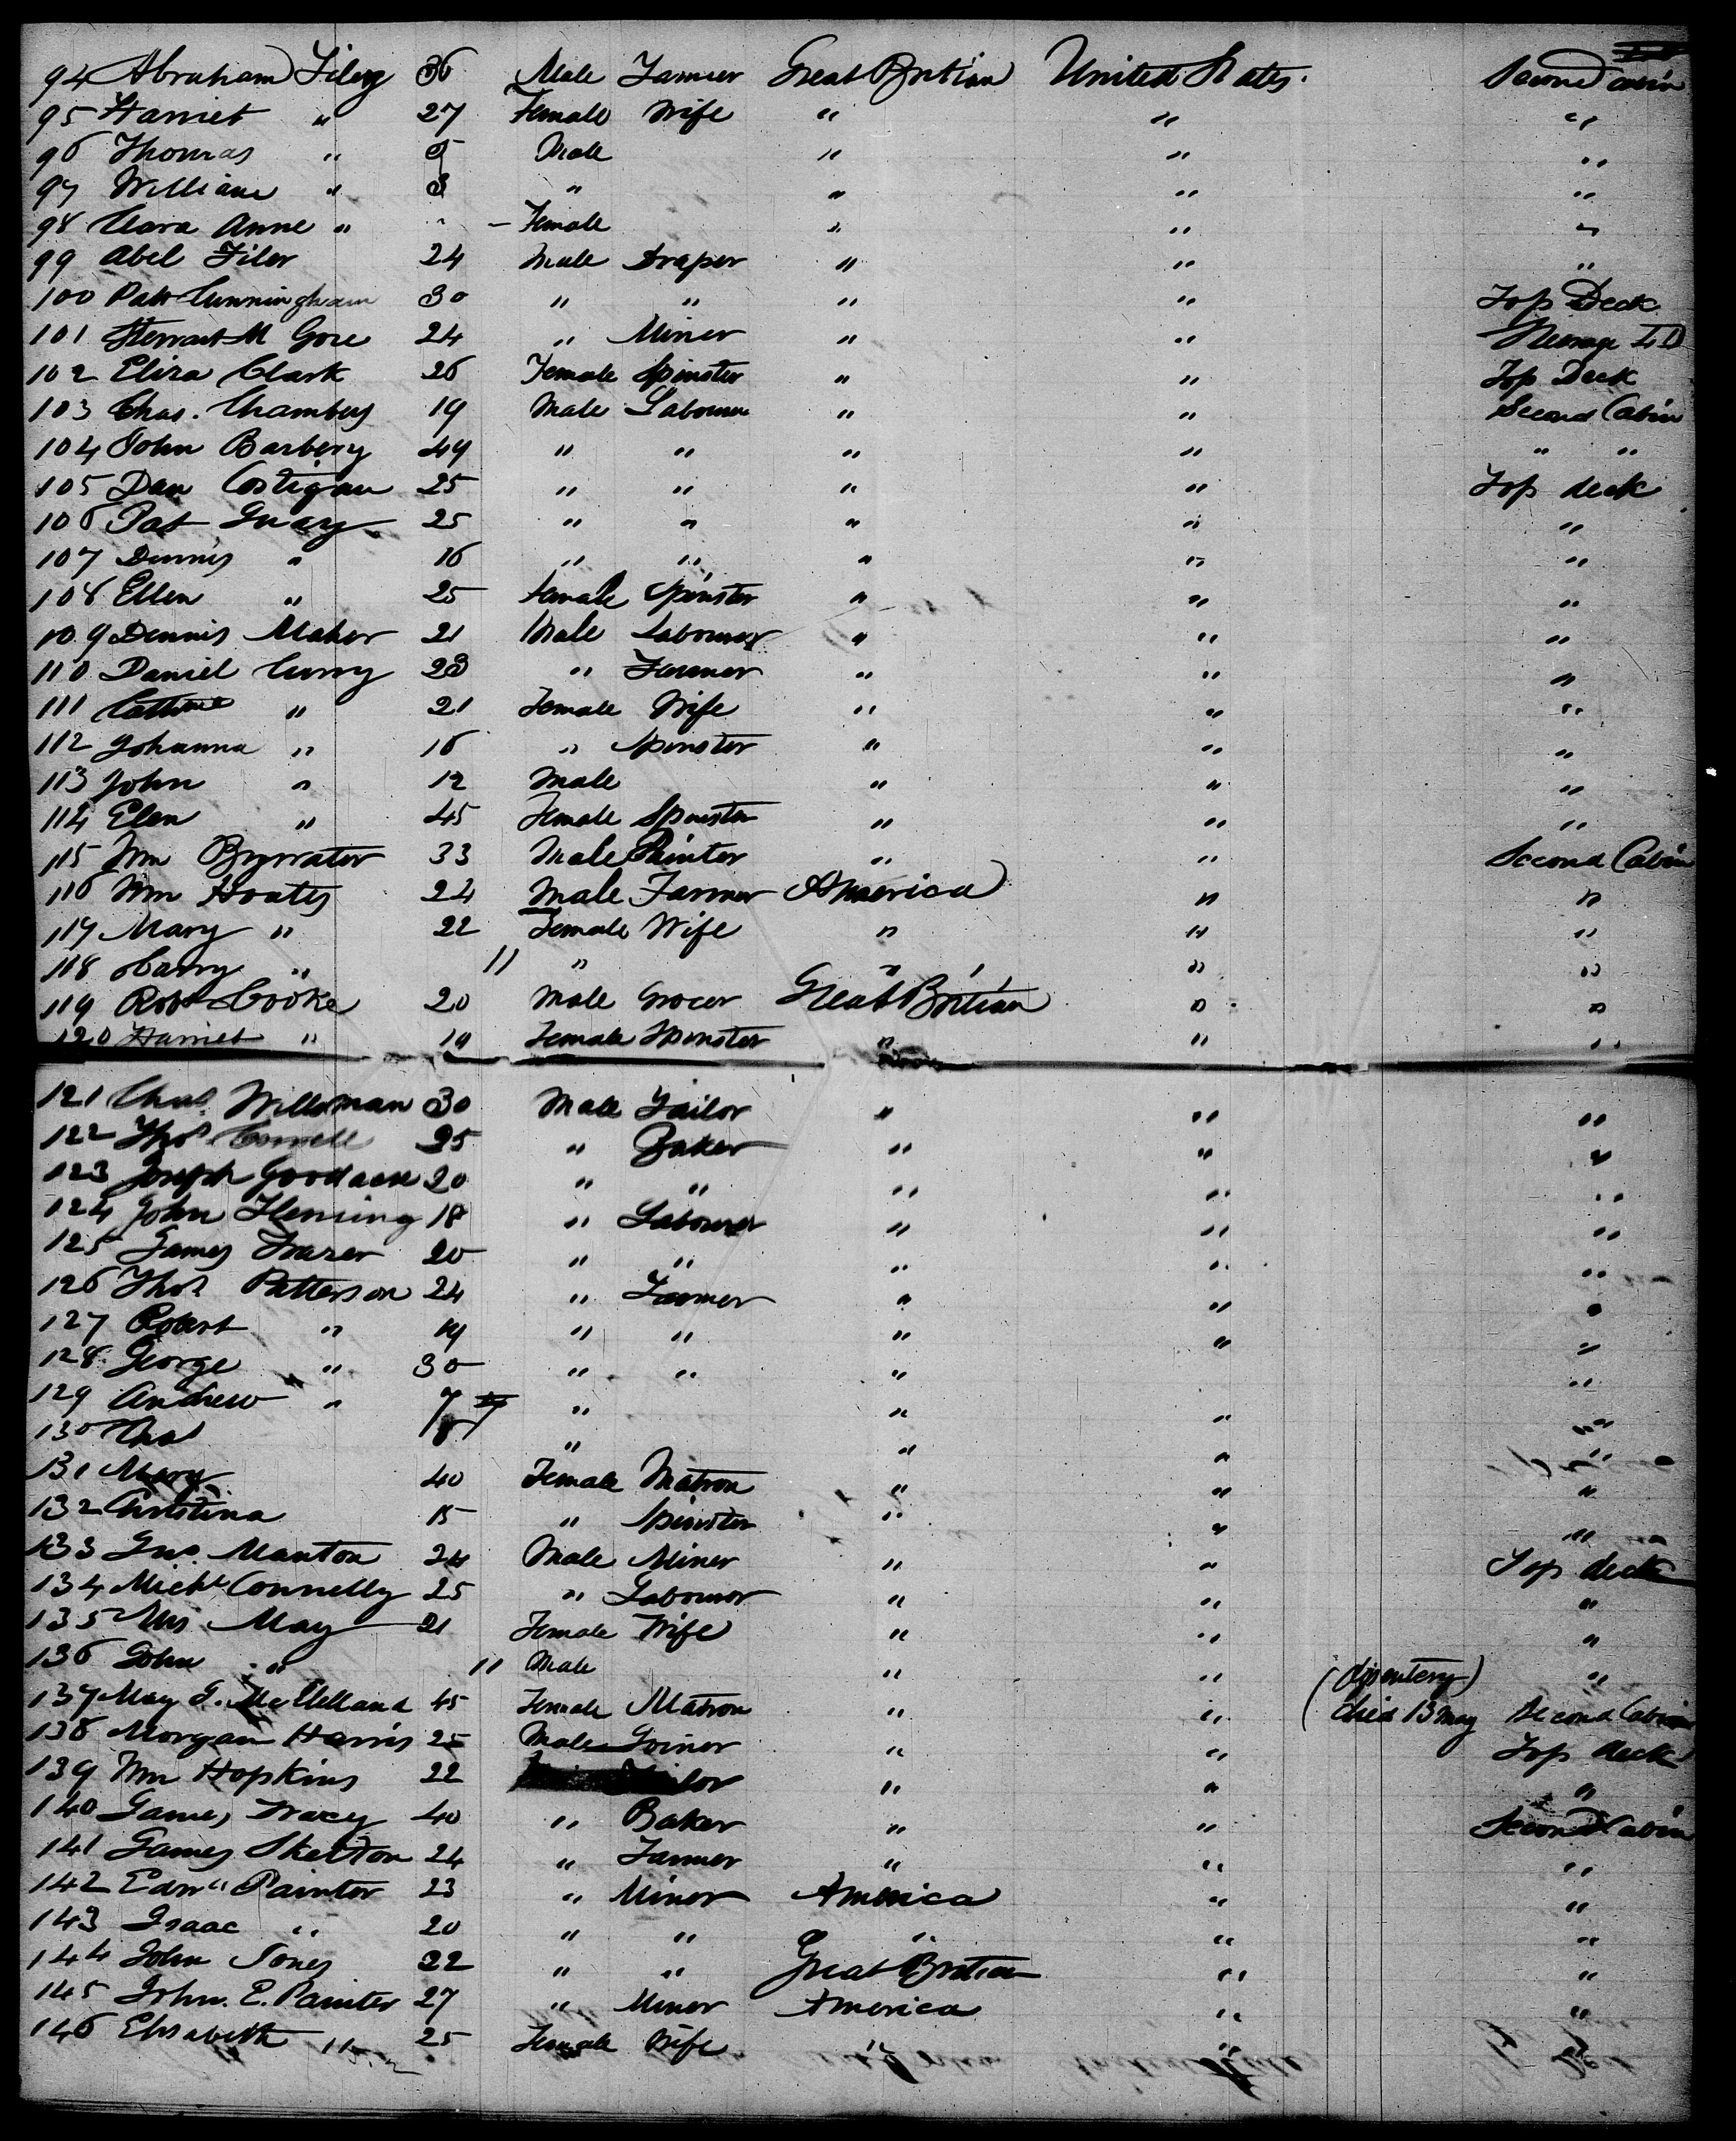 94 Abraham Filer 36 Male Farmer Great Britian United States. Second Cabin
95 Harriet " 27 Female Wife " " "
96 Thomas " 5 Male " " "
97 William " 3 " " " "
98 Clara Anne " - Female " " "
99 Abel Filer 24 Male Draper " " "
100 Patk Cunningham 30 " " " " Top Deck
101 Stewart M Gore 24 " Miner " " Steerage
102 Eliza Clark 26 Female Spinster " " Top Deck
103 Chas. Chambers 19 Male Labourer " " Second Cabin
104 John Barbery 49 " " " " " "
105 Dan Costigan 25 " " " " Top deck
106 Pat 25 " " " " "
107 Dennis " 16 " " " " "
108 Ellen " 25 Female Spinster " " "
109 Dennis Maher 21 Male Labourer " " "
110 Daniel Curry 23 " Farmer " " "
111 " 21 Female Wife " " "
112 Johanna " 16 " Spinster " " "
113 John " 12 Male " " "
114 Elen " 45 Female Spinster " " "
115 Wm Bywater 33 Male Painter " " Second Cabin
116 Wm Hoates 24 Male Farmer America " "
117 Mary " 22 Female Wife " " "
118 Harry " 11 " " " "
119 Robt Cooke 20 Male Grocer Great Britian " "
120 Harriet " 19 Female Spinster " " "
121 Chas. Willsman 30 Male Tailor " " "
122 Thos 25 " Baker " " "
123 Joseph Goodacre 20 " " " " "
124 John Fleming 18 " Labourer " " "
125 James Frazer 20 " " " " "
126 Thos Patterson 24 " Farmer " " "
127 Robert " 19 " " " " "
128 George " 30 " " " "
129 Andrew " 9 " " " "
130 Chas " " " "
131 Mary 40 Female Matron " " "
132 Christina 15 " Spinster " " "
133 Jno. Manton 24 Male Miner " " Top deck
134 Michl Connelly 25 " Labourer " " "
135 Mrs May 21 Female Wife " " "
136 John " 11 Male " " (dysentery) "
137 May J. McClelland 45 Female Matron " " died 13 May Second Cabin
138 Morgan Harris 25 Male Joiner " " Top deck
139 Wm Hopkins 22 " " "
140 James Tracey 40 " Baker " " Second Cabin
141 James Skelton 24 " Farmer " " "
142 Edwd Painter 23 " Miner America " "
143 Isaac " 20 " " " " "
144 John Jones 22 " " Great Britian " "
145 John. E. Painter 27 " Miner America " "
146 Elisabeth " 25 Female Wife " " "